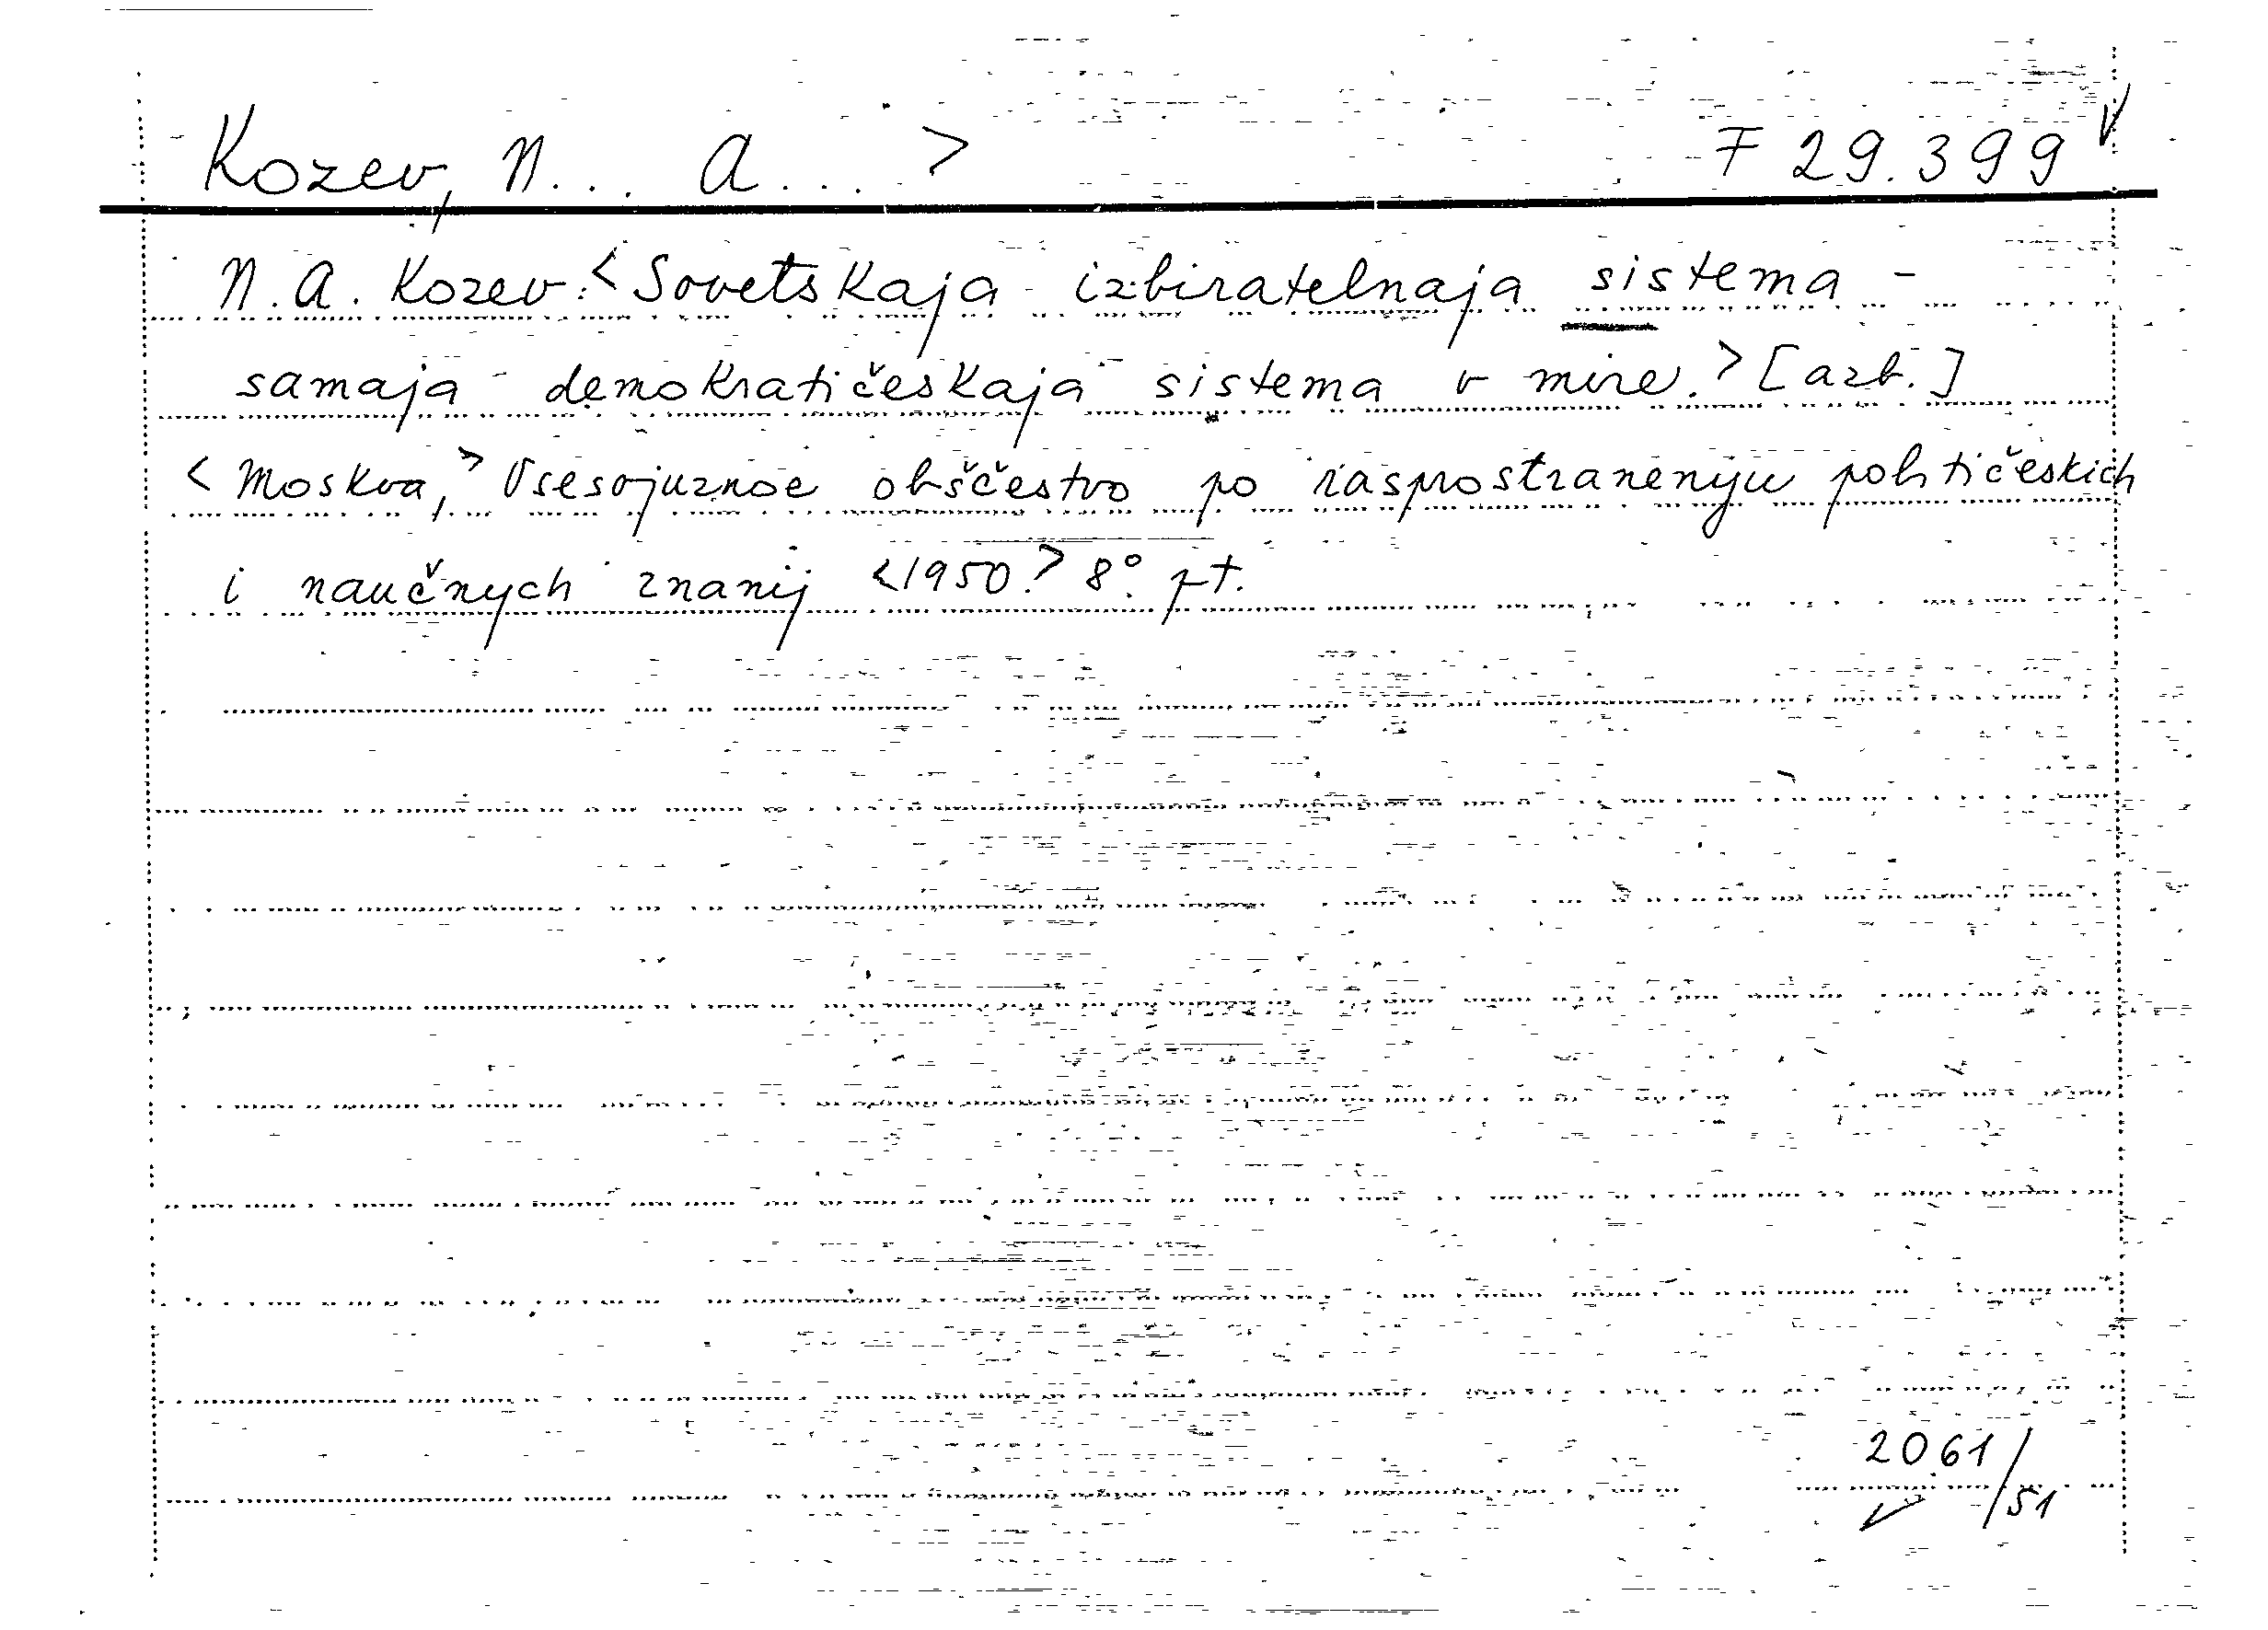 Kozev, N... A... > F 29.399
N.A. Kozev: <Sovetskaja izbiratelnaja sistema -
samaja demokratičeskaja sistema v mire.> [azb.]
<Moskva,> Vsesojuznoe obščestvo po rasprostranenyju političeskich
i naučnych znanij <1950> 8°. pt.
2061/51